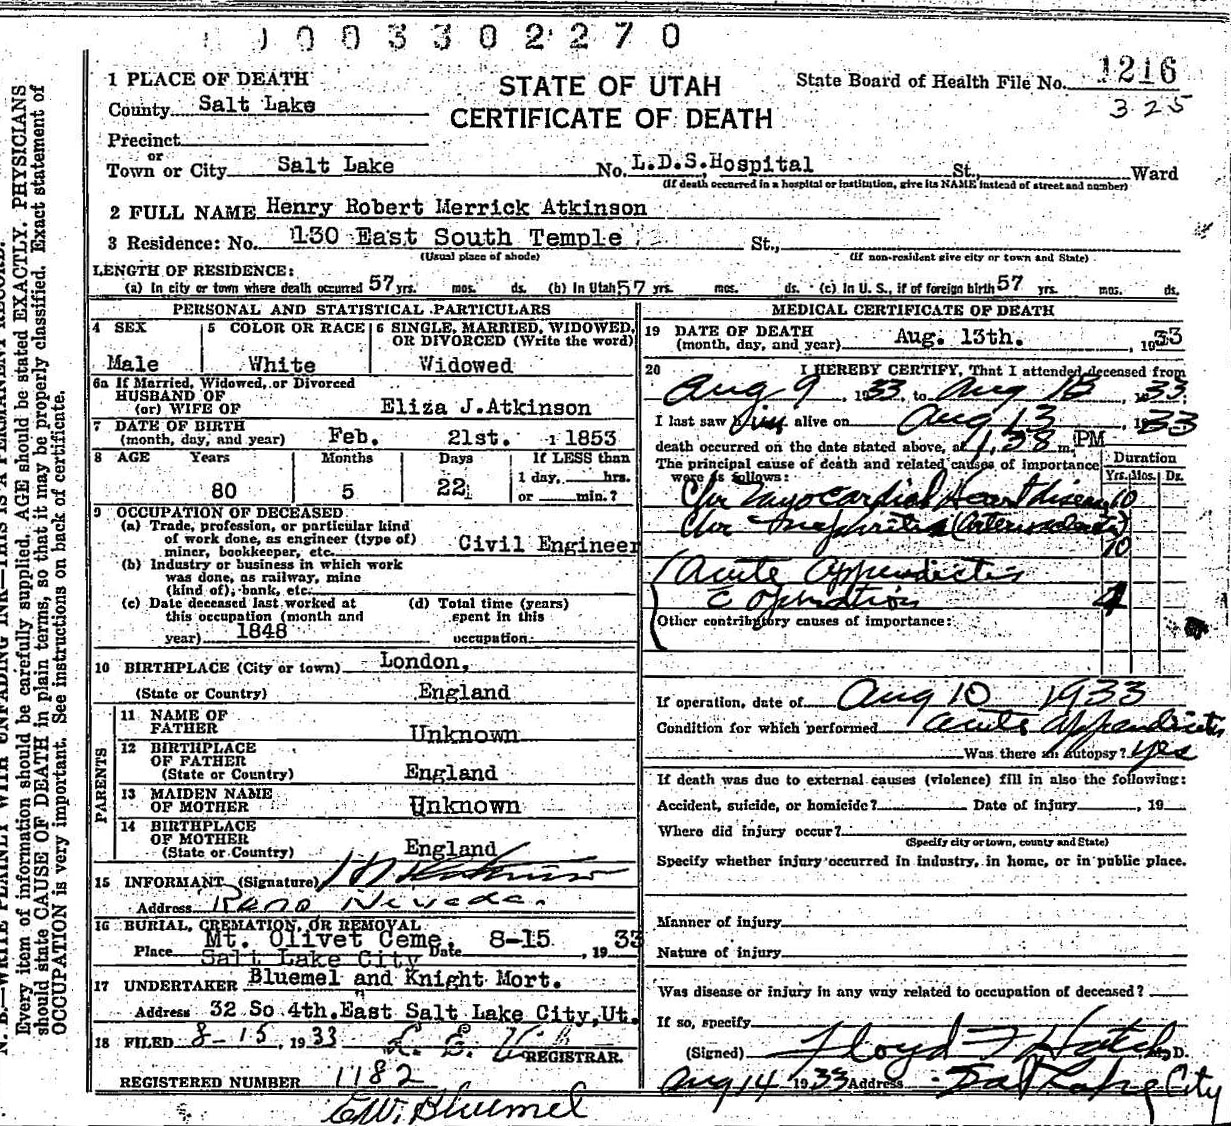 0003302270
1 PLACE OF DEATH
STATE OF UTAH
CERTIFICATE OF DEATH
State Board of Health File No. 1216
325
County Salt Lake
Precinct
or
Town or City Salt Lake No. L.D.S. Hospital St., Ward
(If death occurred in a hospital or institution, give its NAME instead of street and number)
2 FULL NAME Henry Robert Merrick Atkinson
3 Residence: No. 130 East South Temple St.,
(Usual place of abode) (If non-resident give city or town and State)
LENGTH OF RESIDENCE:
(a) In city or town where death occurred 57 yrs. mos. ds. (b) In Utah 57 yrs. mos. ds. (c) In U. S., if of foreign birth 57 yrs. mos. ds.
PERSONAL AND STATISTICAL PARTICULARS
4 SEX
Male
5 COLOR OR RACE
White
6 SINGLE, MARRIED, WIDOWED, OR DIVORCED (Write the word)
Widowed
6a If Married, Widowed, or Divorced
HUSBAND OF
(or) WIFE OF Eliza J. Atkinson
7 DATE OF BIRTH
(month, day, and year) Feb. 21st. 1853
8 AGE Years Months Days If LESS than
80 5 22 1 day, hrs.
or min.?
9 OCCUPATION OF DECEASED
(a) Trade, profession, or particular kind
of work done, as engineer (type of)
miner, bookkeeper, etc. Civil Engineer
(b) Industry or business in which work
was done, as railway, mine
(kind of), bank, etc.
(c) Date deceased last worked at
this occupation (month and
year) 1848
(d) Total time (years)
spent in this
occupation.
10 BIRTHPLACE (City or town) London,
(State or Country) England
PARENTS
11 NAME OF
FATHER Unknown
12 BIRTHPLACE
OF FATHER
(State or Country) England
13 MAIDEN NAME
OF MOTHER Unknown
14 BIRTHPLACE
OF MOTHER
(State or Country) England
15 INFORMANT (Signature) Atkinson
Address Reno Nevada
16 BURIAL, CREMATION, OR REMOVAL
Place Mt. Olivet Ceme. Date 8-15 , 1933
Salt Lake City
17 UNDERTAKER Bluemel and Knight Mort.
Address 32 So 4th. East Salt Lake City, Ut.
18 FILED 8-15, 1933
REGISTRAR.
REGISTERED NUMBER 1182
E.W. Bluemel
MEDICAL CERTIFICATE OF DEATH
19 DATE OF DEATH
(month, day, and year) Aug. 13th. , 1933
20 I HEREBY CERTIFY, That I attended deceased from
Aug 9 , 1933, to Aug 13 , 1933;
I last saw him alive on Aug 13 , 1933
death occurred on the date stated above, at 1.38 m. PM
The principal cause of death and related causes of importance
were as follows:
Duration
Yrs. Mos. Ds.
Chr Myocardial Heart disease 10
Chr Nephritis (Arteriosclerotic)
10
Acute Appendicitis
c operation 4
Other contributory causes of importance:
If operation, date of Aug 10 1933
Condition for which performed acute appendicitis
Was there an autopsy? yes
If death was due to external causes (violence) fill in also the following:
Accident, suicide, or homicide? Date of injury , 19
Where did injury occur?
(Specify city or town, county and State)
Specify whether injury occurred in industry, in home, or in public place.
Manner of injury
Nature of injury
Was disease or injury in any way related to occupation of deceased?
If so, specify
(Signed) Floyd F Hatch M. D.
Aug 14 1933 Address Salt Lake City
N. B.—WRITE PLAINLY WITH UNFADING INK—THIS IS A PERMANENT RECORD.
Every item of information should be carefully supplied. AGE should be stated EXACTLY. PHYSICIANS
should state CAUSE OF DEATH in plain terms, so that it may be properly classified. Exact statement of
OCCUPATION is very important. See instructions on back of certificate.